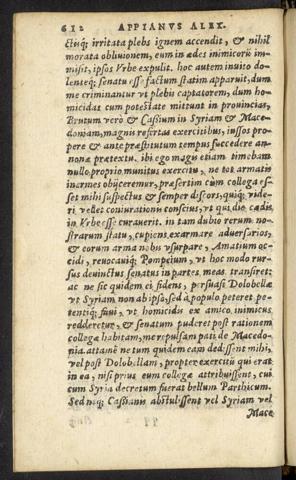 612 APPIANVS ALEX.
ctiuq; irritata plebs ignem accendit, & nihil
morata obliuionem, eum in ædes inimicorũ im-
misit, ipsos Vrbe expulit. hoc autem inuito do-
lenteq; senatu esse factum statim apparuit, dum
me criminantur vt plebis captatorem, dum ho-
micidas cum potestate mittunt in prouincias,
Brutum verò & Cassium in Syriam & Mace-
doniam, magnis refertas exercitibus, iussos pro-
pere & ante præstitutum tempus succedere an-
nonæ prætextu. ibi ego magis etiam timebam
nullo proprio munitus exercitu, ne tot armatis
inermes obijceremur, præsertim cùm collega es-
set mihi suspectus & semper discors, quiq; vide-
ri vellet coniurationis conscius, vt qui die cædis
in Vrbe esse curauerit. in tam dubio rerum no-
strarum statu, cupiens exarmare aduersarios,
& eorum arma nobis vsurpare, Amatium oc-
cidi, reuocauiq; Pompeium, vt hoc modo rur-
sus deuinctus senatus in partes meas transiret:
ac ne sic quidem ei fidens, persuasi Dolobellæ
vt Syriam non ab ipso, sed à populo peteret pe-
tentiq; fuui, vt homicidis ex amico inimicus
redderetur, & senatum puderet post rationem
collegæ habitam, me repulsam pati de Macedo-
nia. attamẽ ne tum quidem eam dedissent mihi,
vel post Dolobellam, propter exercitũ qui erat
in ea, nisi prius eum collegæ attribuissent, cui
cum Syria decretum fuerat bellum Parthicum.
Sed neq; Cassianis abstulissent vel Syriam vel
Mace